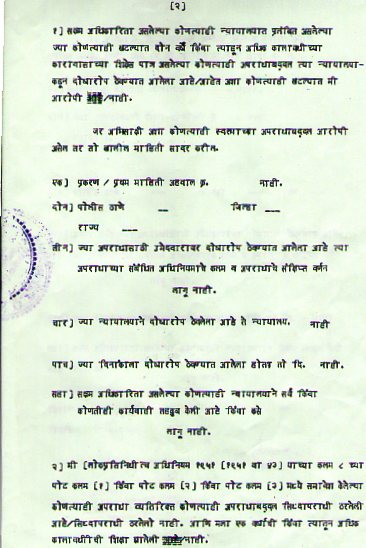 [२]
१] सक्षम अधिकारिता असलेल्या कोणत्याही न्यायालयात प्रलंबित असलेल्या
ज्या कोणत्याही खटल्यात दोन वर्षे किंवा त्याहून अधिक कालावधीच्या
कारावासाच्या शिक्षेस पात्र असलेल्या कोणत्याही अपराधाबद्दल त्या न्यायालया-
कडून दोषारोप ठेवण्यात आलेला आहे/आहेत अशा कोणत्याही खटल्यात मी
आरोपी /नाही.
जर अभिसाक्षी अशा कोणत्याही स्वरुपाच्या अपराधाबद्दल आरोपी
असेल तर तो खालील माहिती सादर करील.
एक] प्रकरण / प्रथम माहिती अहवाल क्र. नाही.
दोन] पोलीस ठाणे -- जिल्हा ---
राज्य ---
तीन] ज्या अपराधासाठी उमेदवारावर दोषारोप ठेवण्यात आलेला आहे त्या
अपराधाच्या संबंधित अधिनियमाचे कलम व अपराधाचे संक्षिप्त वर्णन
लागू नाही.
चार] ज्या न्यायालयाने दोषारोप ठेवलेला आहे ते न्यायालय. नाही
पाच] ज्या दिनांकाला दोषारोप ठेवण्यात आलेला होता तो दि. नाही.
सहा] सक्षम अधिकारिता असलेल्या कोणत्याही न्यायालयाने सर्व किंवा
कोणतीही कार्यवाही तहकूब केली आहे किंवा कसे
लागू नाही.
२] मी [लोकप्रतिनिधीत्व अधिनियम १९५१ [१९५१ चा ४३] याच्या कलम ८ च्या
पोट कलम [१] किंवा पोट कलम [२] किंवा पोट कलम [३] मध्ये समावेश केलेल्या
कोणत्याही अपराधा व्यतिरिक्त कोणत्याही अपराधाबद्दल सिध्दापराधी ठरलेली
आहे/सिध्दापराधी ठरलेली नाही. आणि मला एक वर्षाची किंवा त्याहून अधिक
कालावधीची शिक्षा झालेली /नाही.